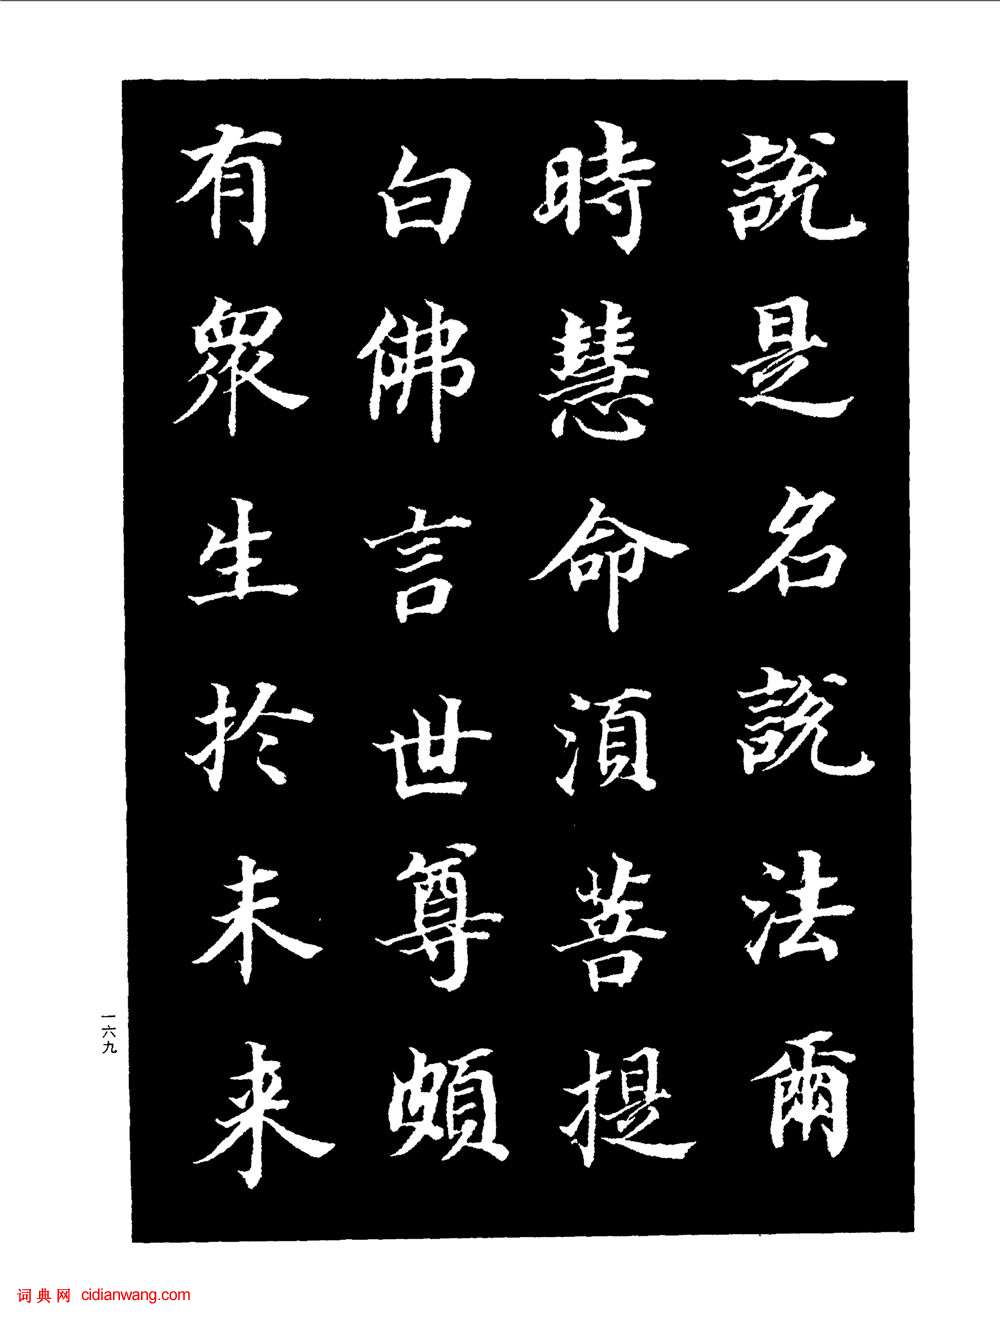 說是名說法爾
時慧命須菩提
白佛言世尊頗
有眾生於未来
一六九
词典网 cidianwang.com